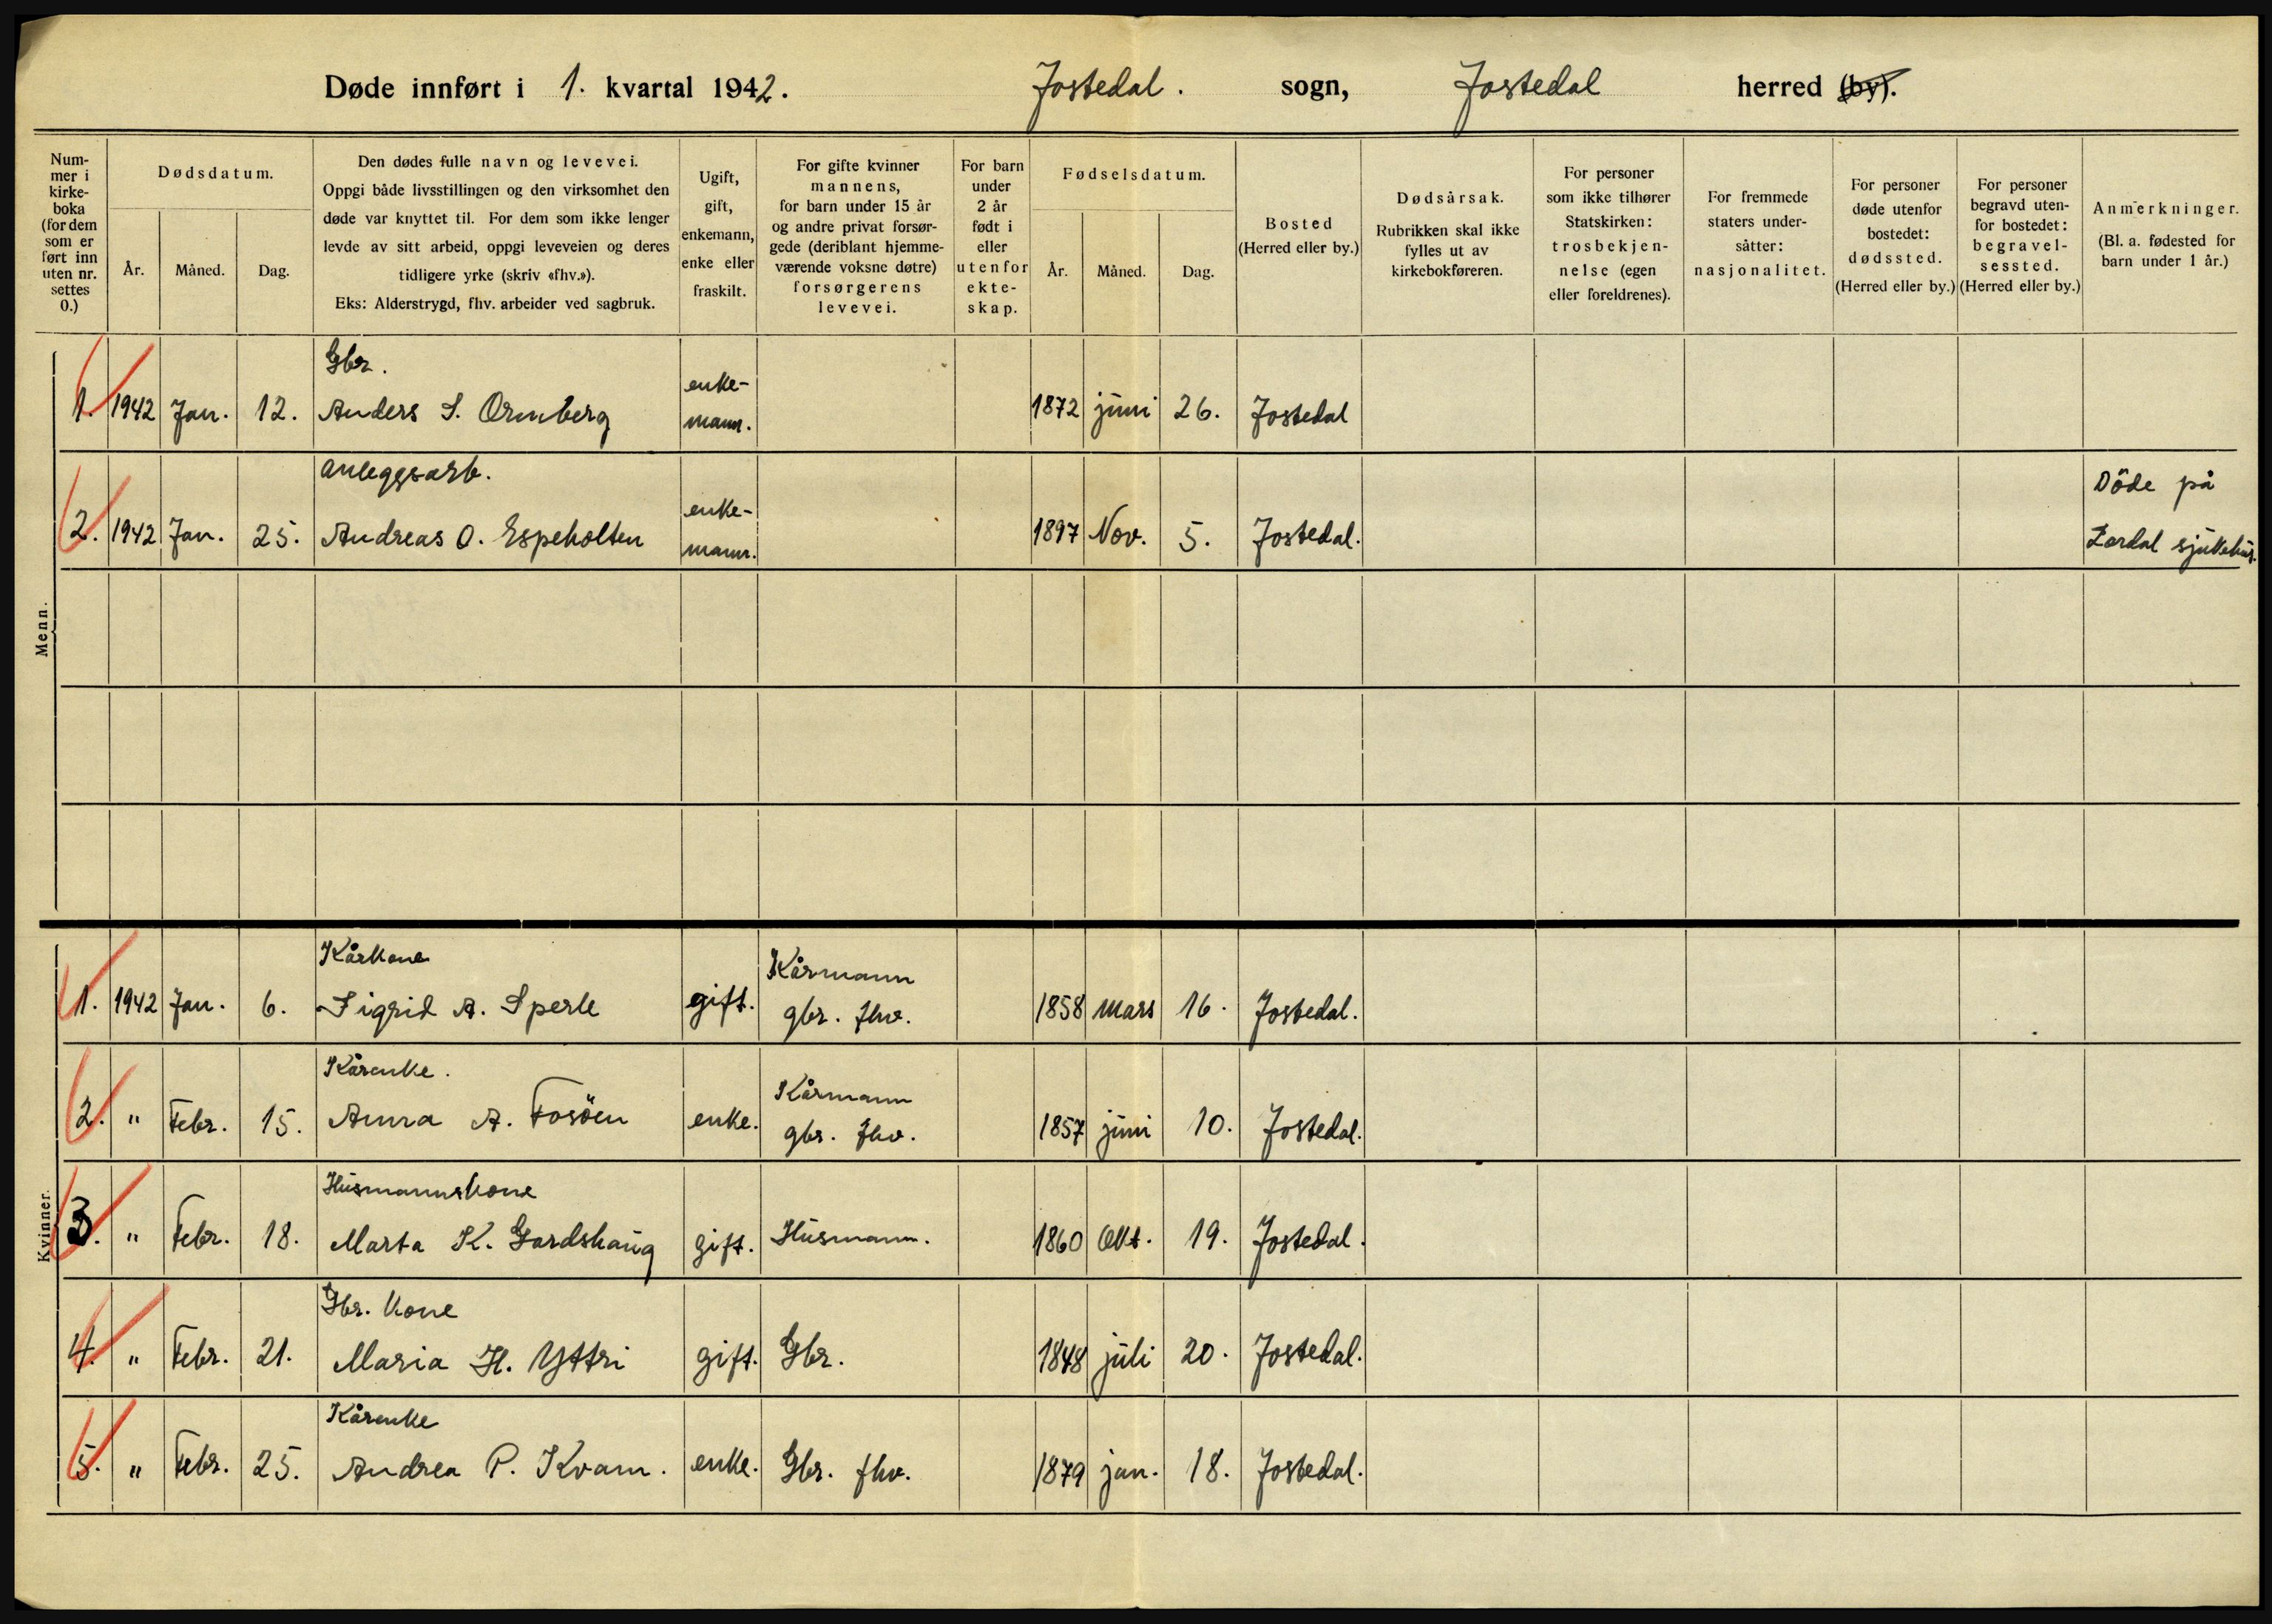 Døde innført i 1. kvartal 1942. Jostedal. sogn, Jostedal herred (by).
Num-
mer i
kirke-
boka
(for dem
som er
ført inn
uten nr.
settes
0.)
Dødsdatum.
År. Måned. Dag.
Den dødes fulle navn og levevei.
Oppgi både livsstillingen og den virksomhet den
døde var knyttet til. For dem som ikke lenger
levde av sitt arbeid, oppgi leveveien og deres
tidligere yrke (skriv «fhv.»).
Eks: Alderstrygd, fhv. arbeider ved sagbruk.
Ugift,
gift,
enkemann,
enke eller
fraskilt.
For gifte kvinner
mannens,
for barn under 15 år
og andre privat forsør-
gede (deriblant hjemme-
værende voksne døtre)
forsørgerens
levevei.
For barn
under
2 år
født i
eller
utenfor
ekte-
skap.
Fødselsdatum.
År. Måned. Dag.
Bosted
(Herred eller by.)
Dødsårsak.
Rubrikken skal ikke
fylles ut av
kirkebokføreren.
For personer
som ikke tilhører
Statskirken:
trosbekjen-
nelse (egen
eller foreldrenes).
For fremmede
staters under-
såtter:
nasjonalitet.
For personer
døde utenfor
bostedet:
dødssted.
(Herred eller by.)
For personer
begravd uten-
for bostedet:
begravel-
sessted.
(Herred eller by.)
Anmerkninger.
(Bl. a. fødested for
barn under 1 år.)
Menn.
Gbr.
enke-
1. 1942 Jan. 12. Anders S. Ormberg mann. 1872 juni 26. Jostedal
anleggsarb.
enke- Döde på
2. 1942 Jan. 25. Andreas O. Espeholten mann. 1897 Nov. 5. Jostedal. Lærdal sjukehus.
Kvinner.
Kårkone Kårmann
1. 1942 Jan. 6. Sigrid A. Sperle gift. gbr. fhv. 1858 mars 16. Jostedal.
Kårenke. Kårmann
2. " Febr. 15. Anna A. Fosöen enke. gbr. fhv. 1857 juni 10. Jostedal.
Husmannskone
3. " Febr. 18. Marta K. Gardshaug gift. Husmann. 1860 Okt. 19. Jostedal.
Gbr. kone
4. " Febr. 21. Maria H. Yttri gift. Gbr. 1848 juli 20. Jostedal.
Kårenke
5. " Febr. 25. Andrea P. Kvam. enke. Gbr. fhv. 1879 jan. 18. Jostedal.